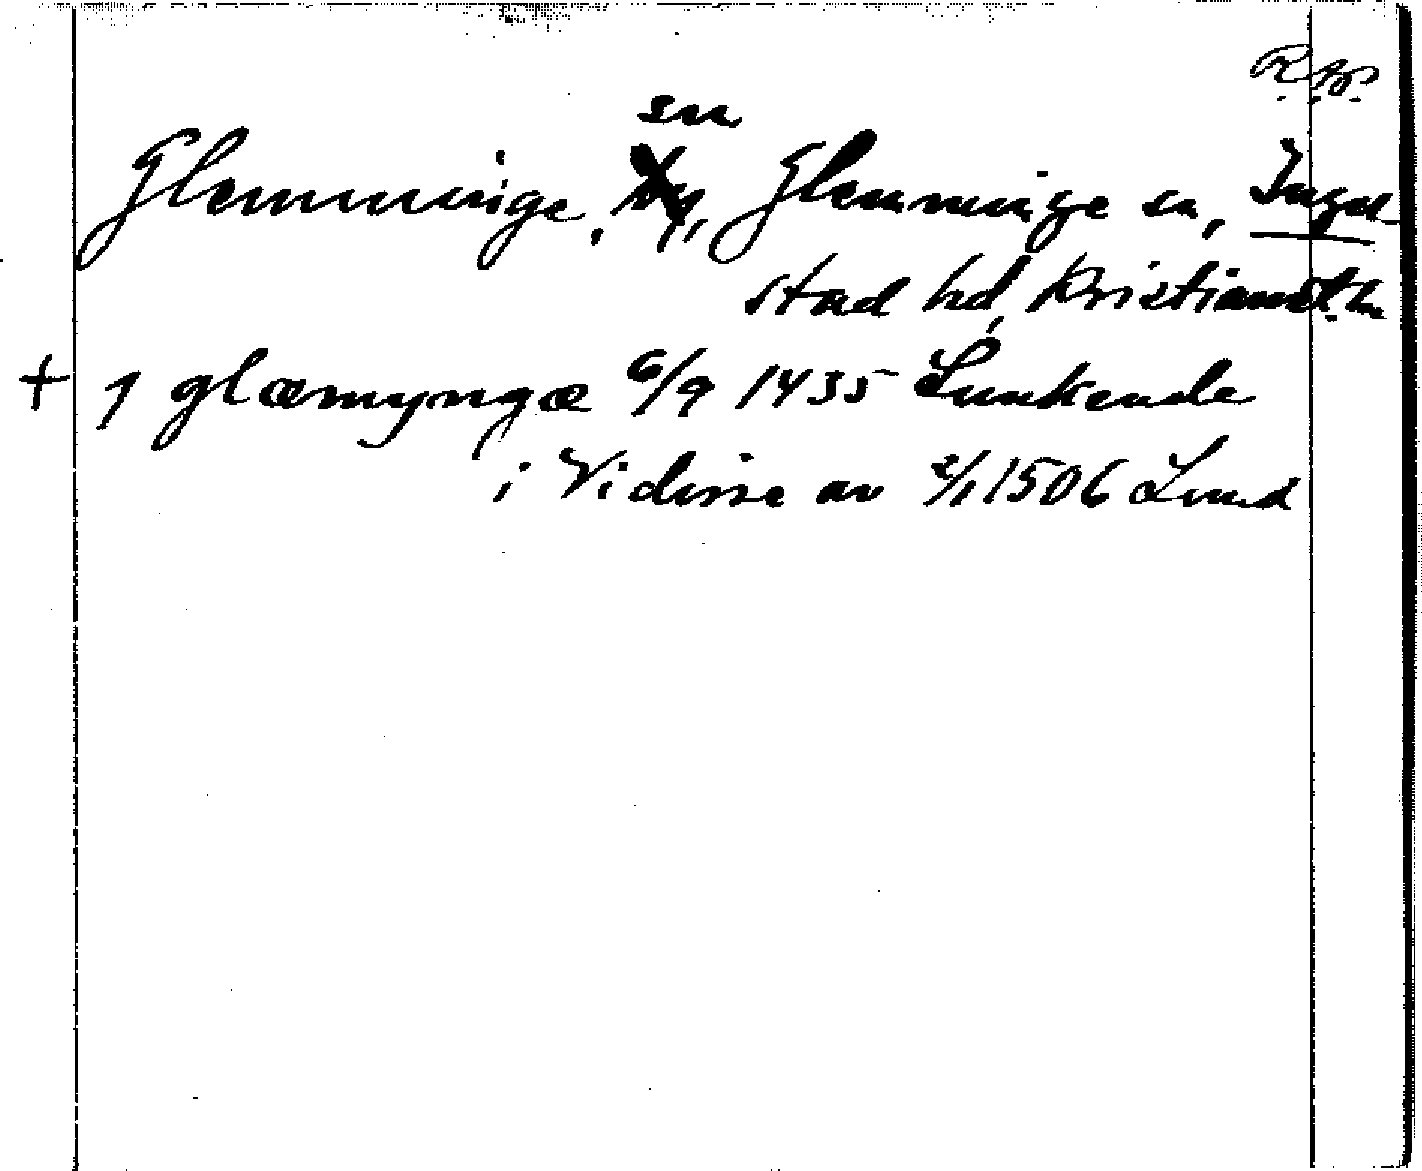 R. W.
sn
Glemminge, by, Glemminge sn, Ingel-
stad hd, Kristianst. ln
+ j glæmyngæ 6/9 1435 Lunkende
i Vidisse av 2/1 1506 Lund